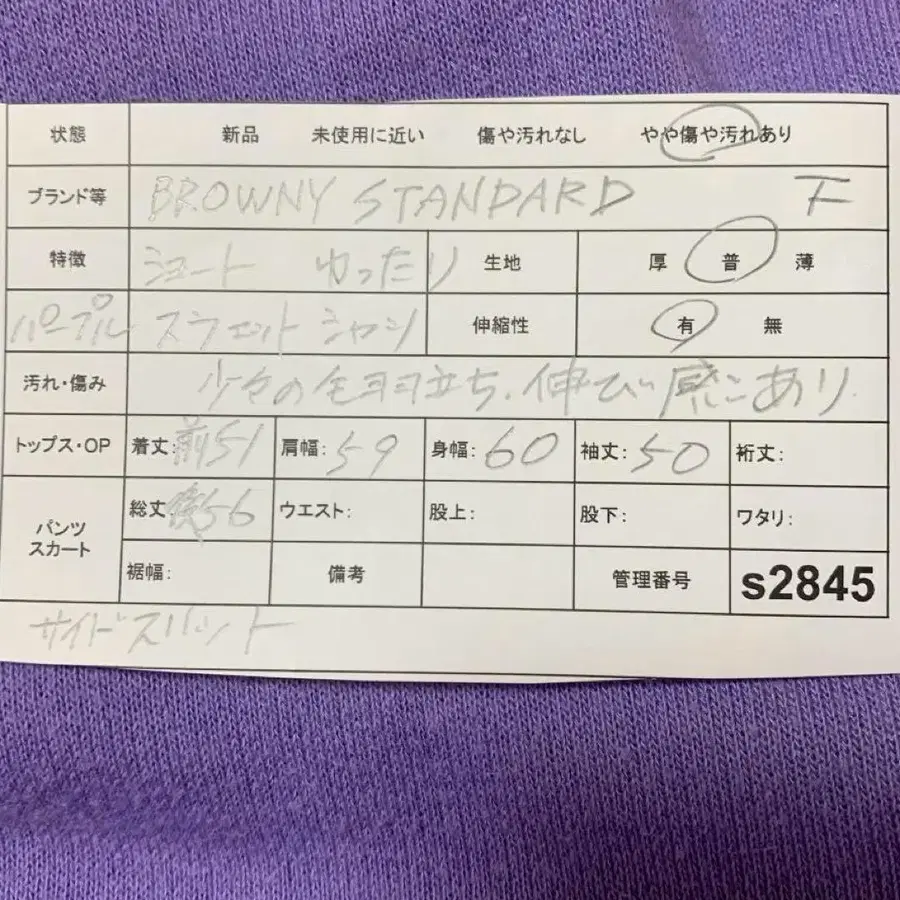 状態 新品 未使用に近い 傷や汚れなし やや傷や汚れあり
ブランド等 BROWNY STANDARD F
特徴 ショート ゆったり 生地 厚 普 薄
パープル スウェット シャツ 伸縮性 有 無
汚れ・傷み 少々の毛羽立ち、伸び感あり.
トップス・OP 着丈:前51 肩幅:59 身幅:60 袖丈:50 裄丈:
パンツ スカート 総丈:後56 ウエスト: 股上: 股下: ワタリ:
裾幅: 備考 管理番号 s2845
サイドスリット